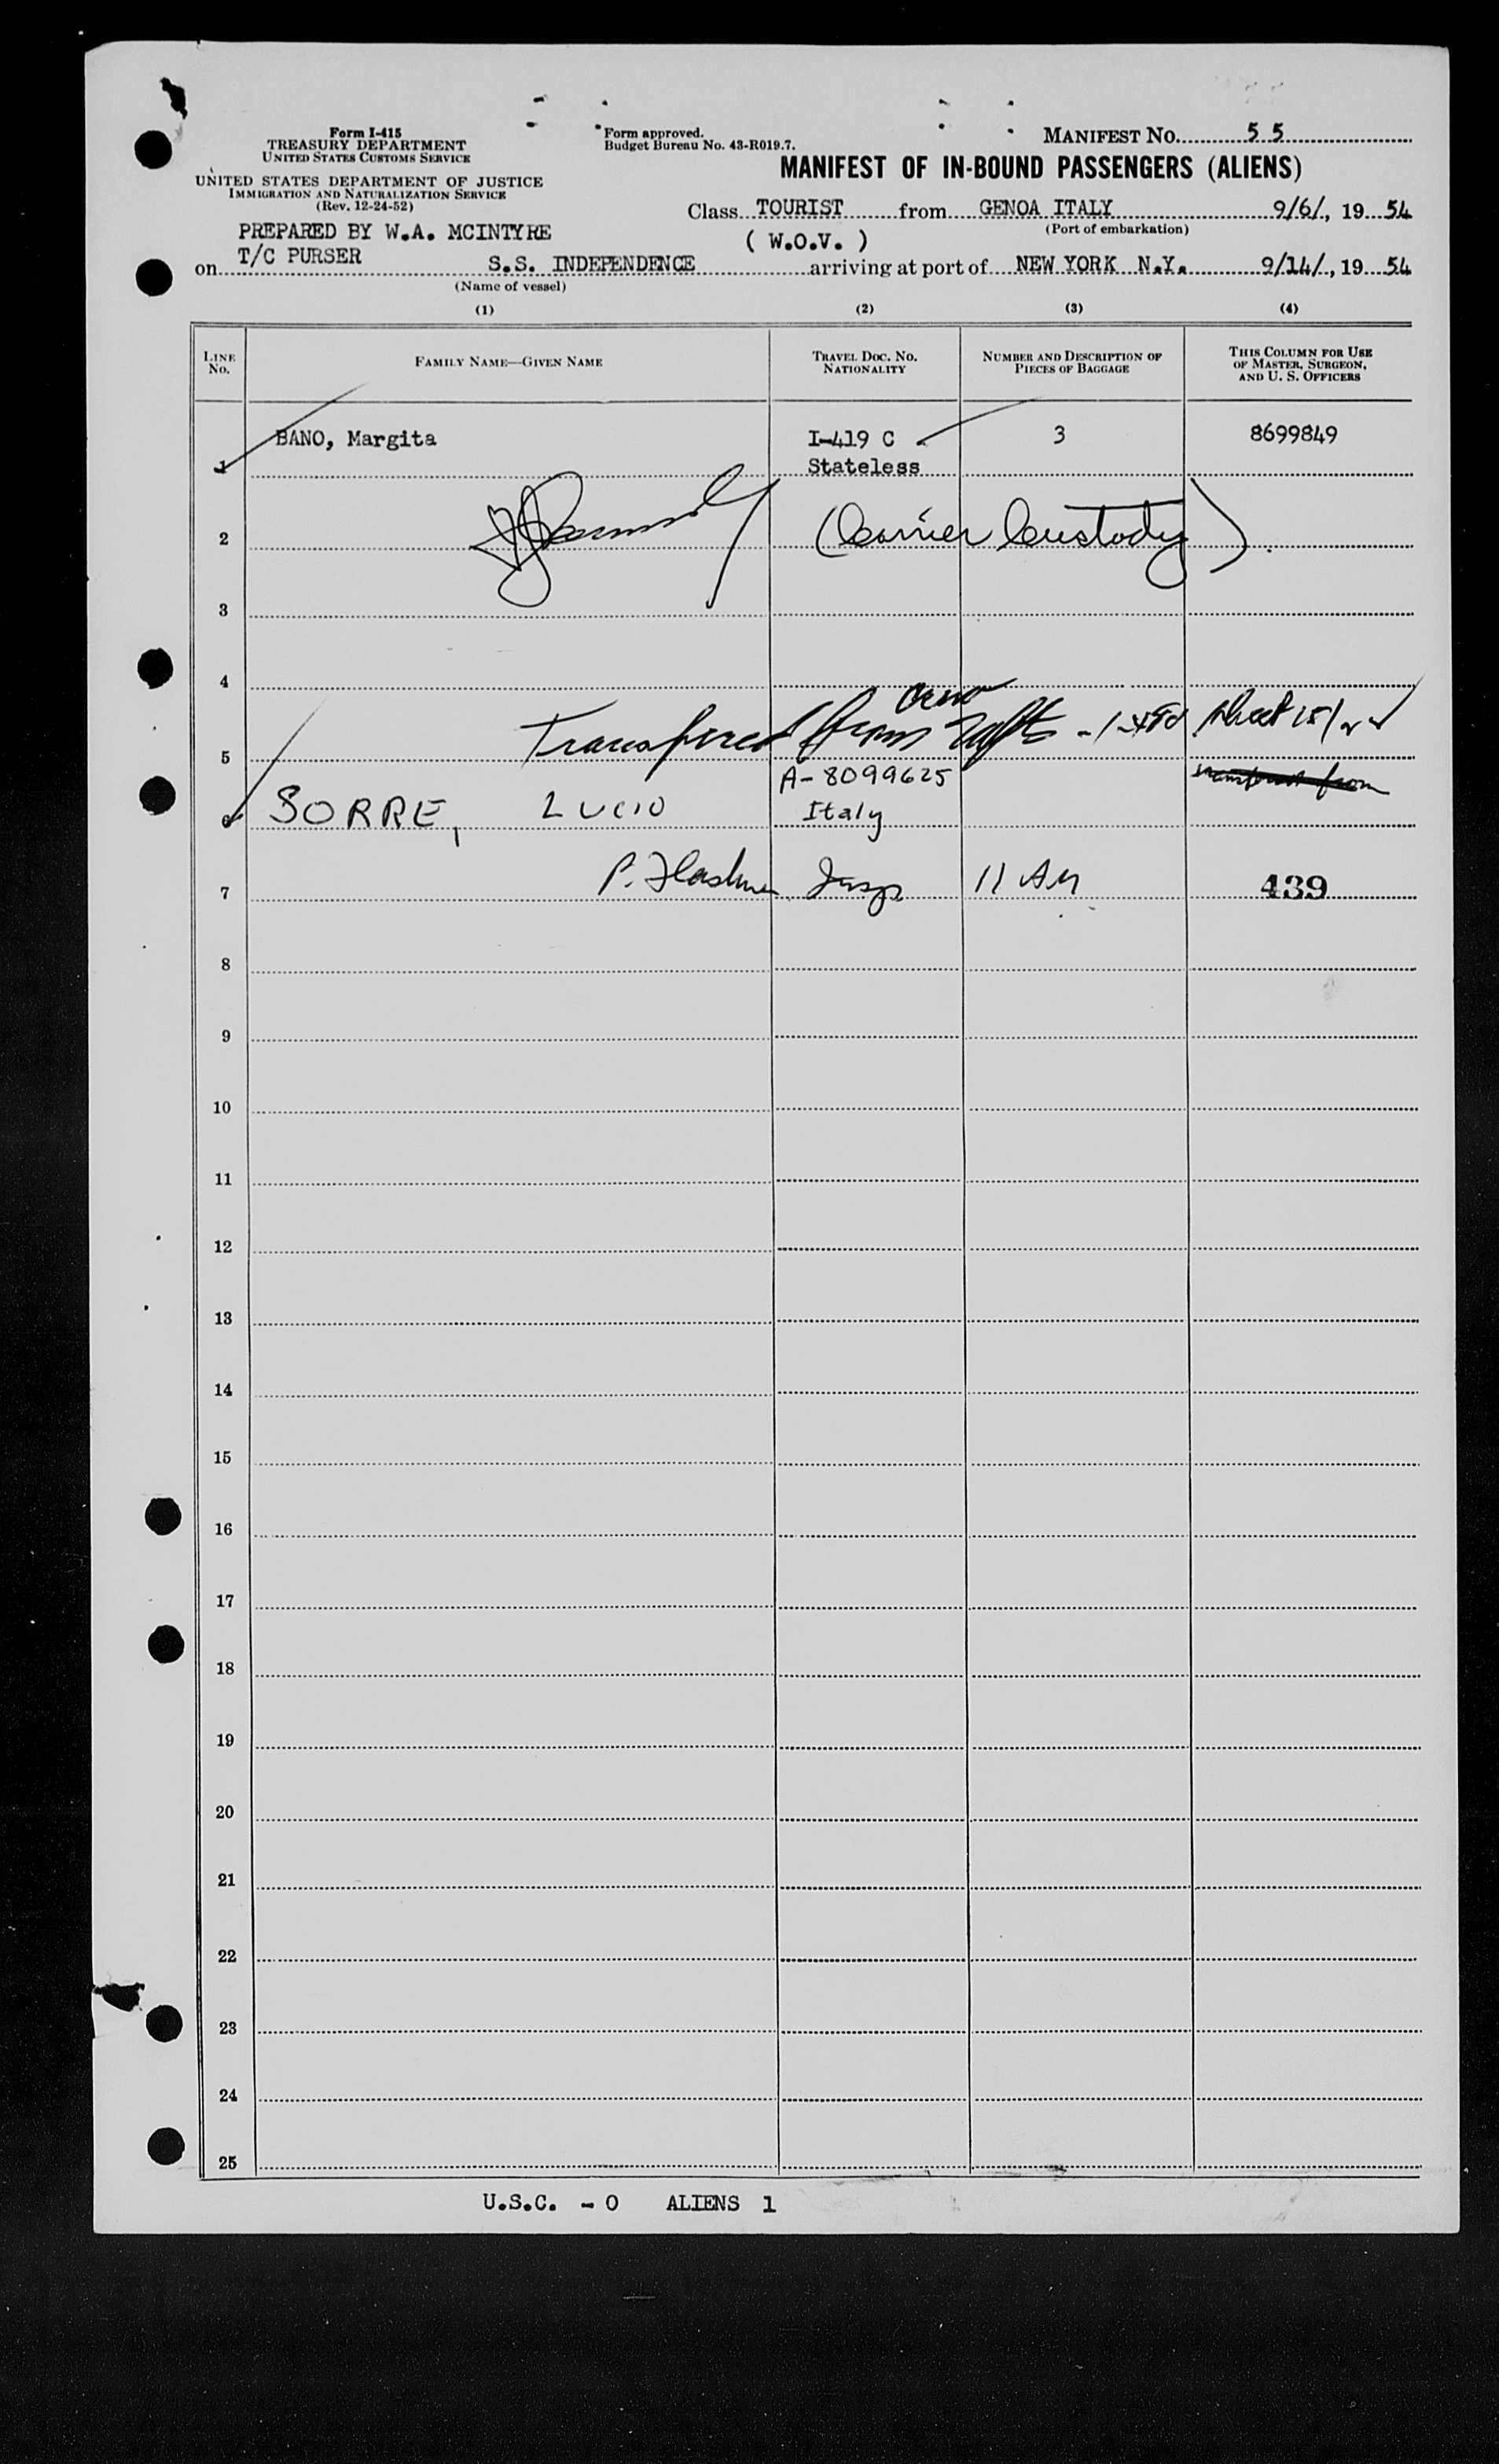 Form I-415
TREASURY DEPARTMENT
UNITED STATES CUSTOMS SERVICE
UNITED STATES DEPARTMENT OF JUSTICE
IMMIGRATION AND NATURALIZATION SERVICE
(Rev. 12-24-52)
Form approved.
Budget Bureau No. 43-R019.7.
MANIFEST NO. 55
MANIFEST OF IN-BOUND PASSENGERS (ALIENS)
Class TOURIST from GENOA ITALY 9/6/, 19 54
(Port of embarkation)
PREPARED BY W.A. MCINTYRE
( W.O.V. )
T/C PURSER
on S.S. INDEPENDENCE arriving at port of NEW YORK N.Y. 9/14/, 19 54
(Name of vessel)
(1) (2) (3) (4)
LINE No. FAMILY NAME—GIVEN NAME TRAVEL DOC. NO. NATIONALITY NUMBER AND DESCRIPTION OF PIECES OF BAGGAGE THIS COLUMN FOR USE OF MASTER, SURGEON, AND U. S. OFFICERS
1 BANO, Margita I-419 C 3 8699849
Stateless
2 (Carrier Custody)
3
4
5 Transferred from sheet 15/22
A-8099625 transferred from
6 SORRE, LUCIO Italy
7 P. Insp 11 AM 439
8
9
10
11
12
13
14
15
16
17
18
19
20
21
22
23
24
25
U.S.C. - 0 ALIENS 1